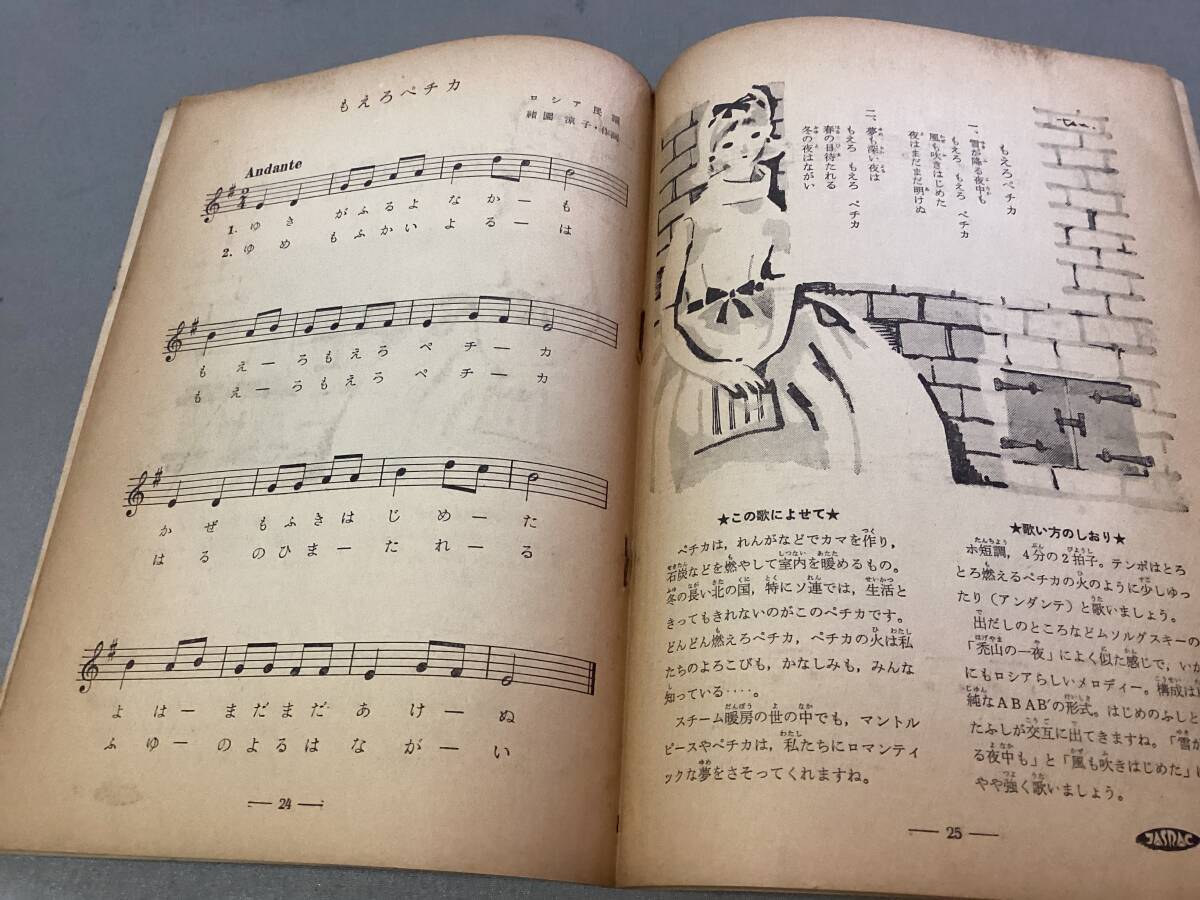 もえろペチカ
ロシア民謡
禎園 涼子・作詞
Andante
1. ゆき がふるよ なかーも
2. ゆめ もふかい よるーは
もえーろもえろ ペチーカ
もえーろもえろ ペチーカ
かぜ もふきは じめーた
はる のひまー たれーる
よはー まだまだ あけーぬ
ふゆー のよるは ながーい
— 24 —
もえろペチカ
一、雪が降る夜中も
もえろ もえろ ペチカ
風も吹きはじめた
夜はまだまだ明けぬ
二、夢も深い夜は
もえろ もえろ ペチカ
春の日待たれる
冬の夜はながい
★この歌によせて★
ペチカは，れんがなどでカマを作り，
石炭などを燃やして室内を暖めるもの。
冬の長い北の国，特にソ連では，生活と
きってもきれないのがこのペチカです。
どんどん燃えろペチカ，ペチカの火は私
たちのよろこびも，かなしみも，みんな
知っている‥‥。
スチーム暖房の世の中でも，マントル
ピースやペチカは，私たちにロマンティ
ックな夢をさそってくれますね。
★歌い方のしおり★
ホ短調，4分の2拍子。テンポはとろ
とろ燃えるペチカの火のように少しゆっ
たり（アンダンテ）と歌いましょう。
出だしのところなどムソルグスキーの
「禿山の一夜」によく似た感じで，いか
にもロシアらしいメロディー。構成は
純なABAB′の形式。はじめのふしと
たふしが交互に出てきますね。「雪が
る夜中も」と「風も吹きはじめた」は
やや強く歌いましょう。
— 25 —
JASRAC